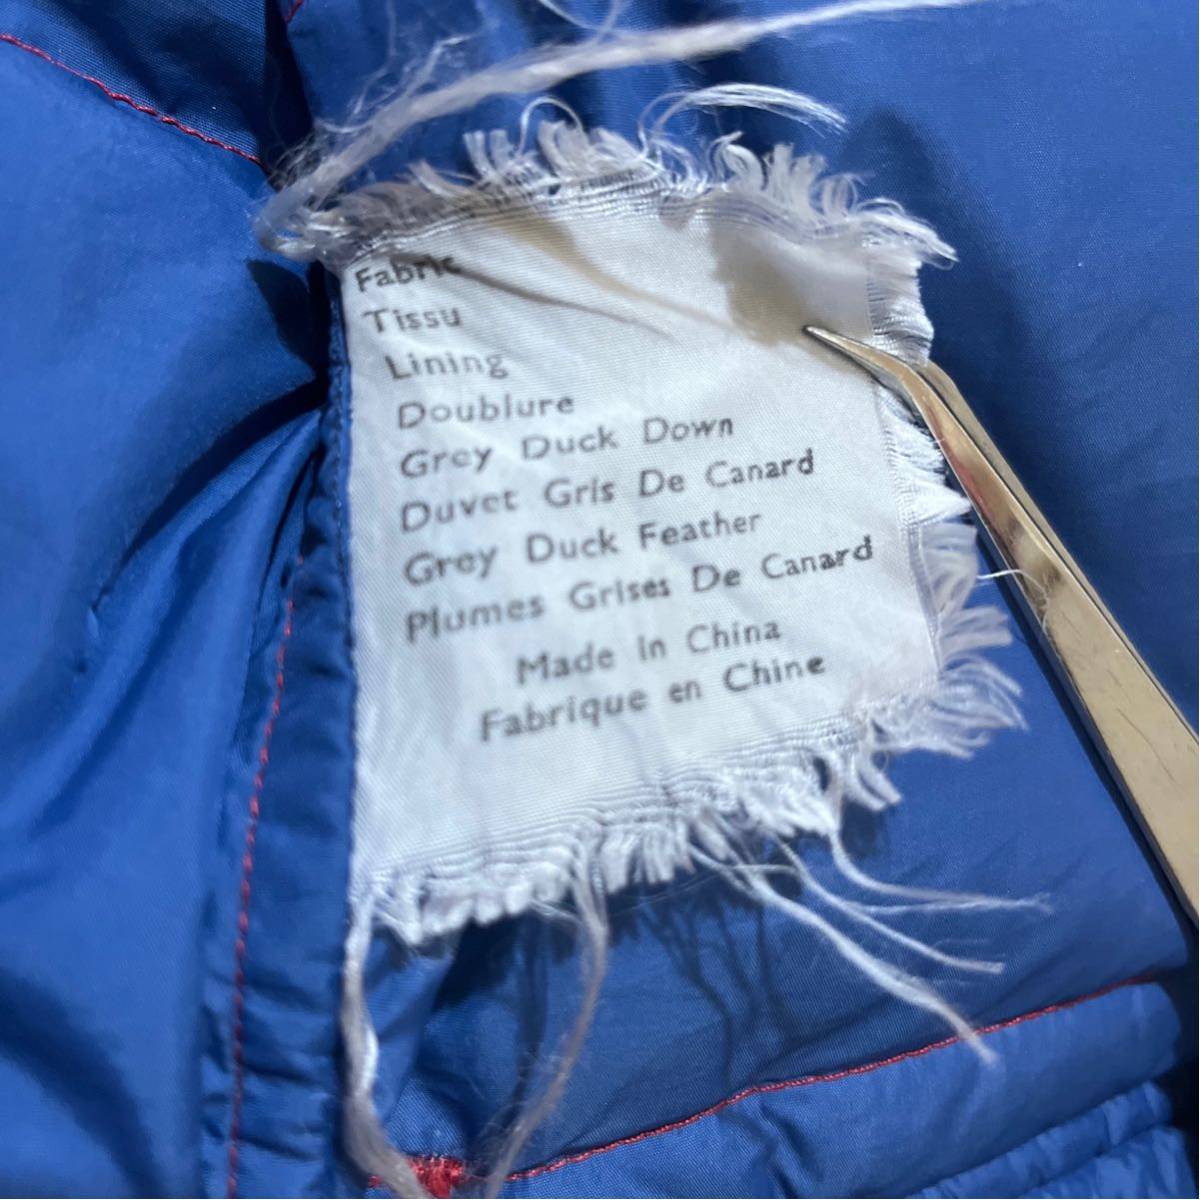 Fabric
Tissu
Lining
Doublure
Grey Duck Down
Duvet Gris De Canard
Grey Duck Feather
Plumes Grises De Canard
Made in China
Fabrique en Chine